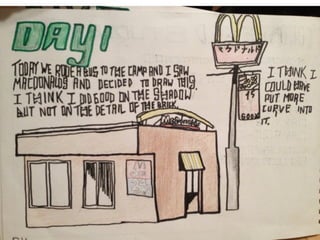 DAY 1
TODAY WE RODE A BUS TO THE CAMP AND I SAW
MACDONALDS AND DECIDED TO DRAW THIS.
I THINK I DID GOOD ON THE SHADOW
BUT NOT ON THE DETAIL OF THE BRICK.
マクドナルド
I THINK I
COULD HAVE
PUT MORE
CURVE INTO
IT.